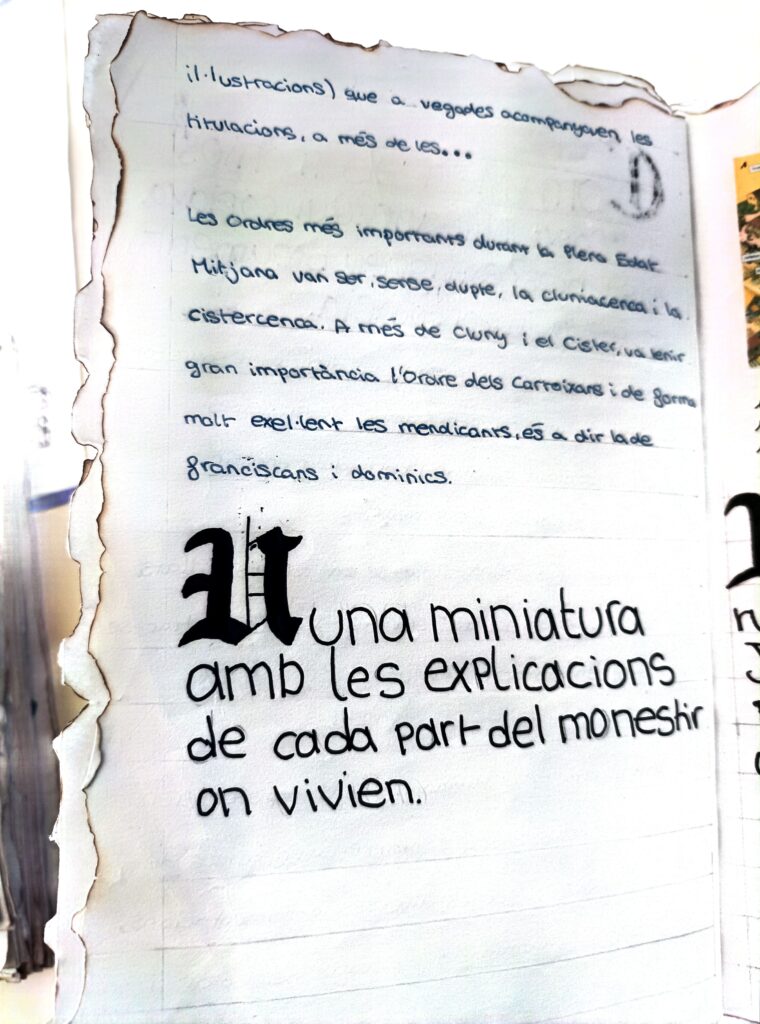 il·lustracions) que a vegades acompanyaven les
titulacions, a més de les...
Les Ordres més importants durant la Plena Edat
Mitjana van ser, sense, dupte, la cluniacenca i la
cistercenca. A més de Cluny i el Cister, va tenir
gran importància l'Ordre dels Cartoixans i de forma
molt exel·lent les mendicants, és a dir la de
franciscans i dominics.
U una miniatura
amb les explicacions
de cada part del monestir
on vivien.